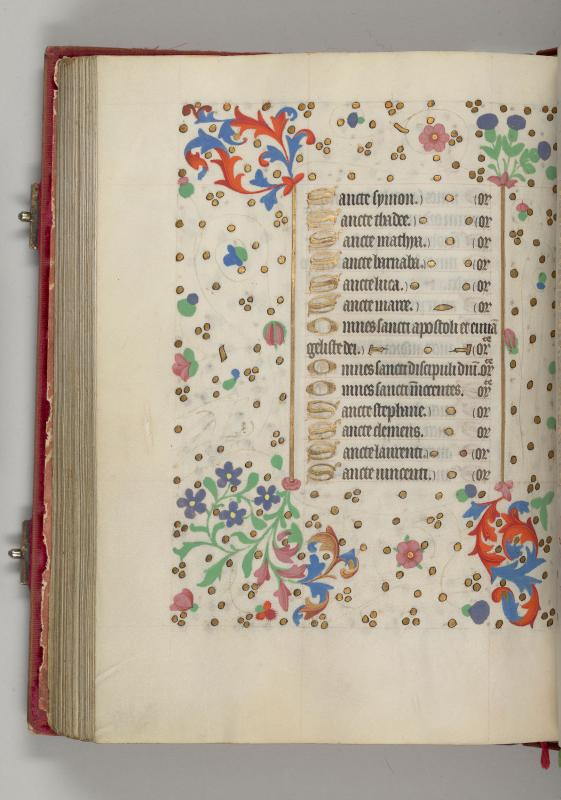 Sancte symon. or
Sancte thadee. or
Sancte mathia. or
Sancte barnaba. or
Sancte luca. or
Sancte marce. or
Omnes sancti apostoli et euuā
geliste dei. orᵗᵉ
Omnes sancti discipuli dnī. orᵗᵉ
Omnes sancti īnocentes. orᵗᵉ
Sancte stephane. or
Sancte clemens. or
Sancte laurenti. or
Sancte vincenti. or